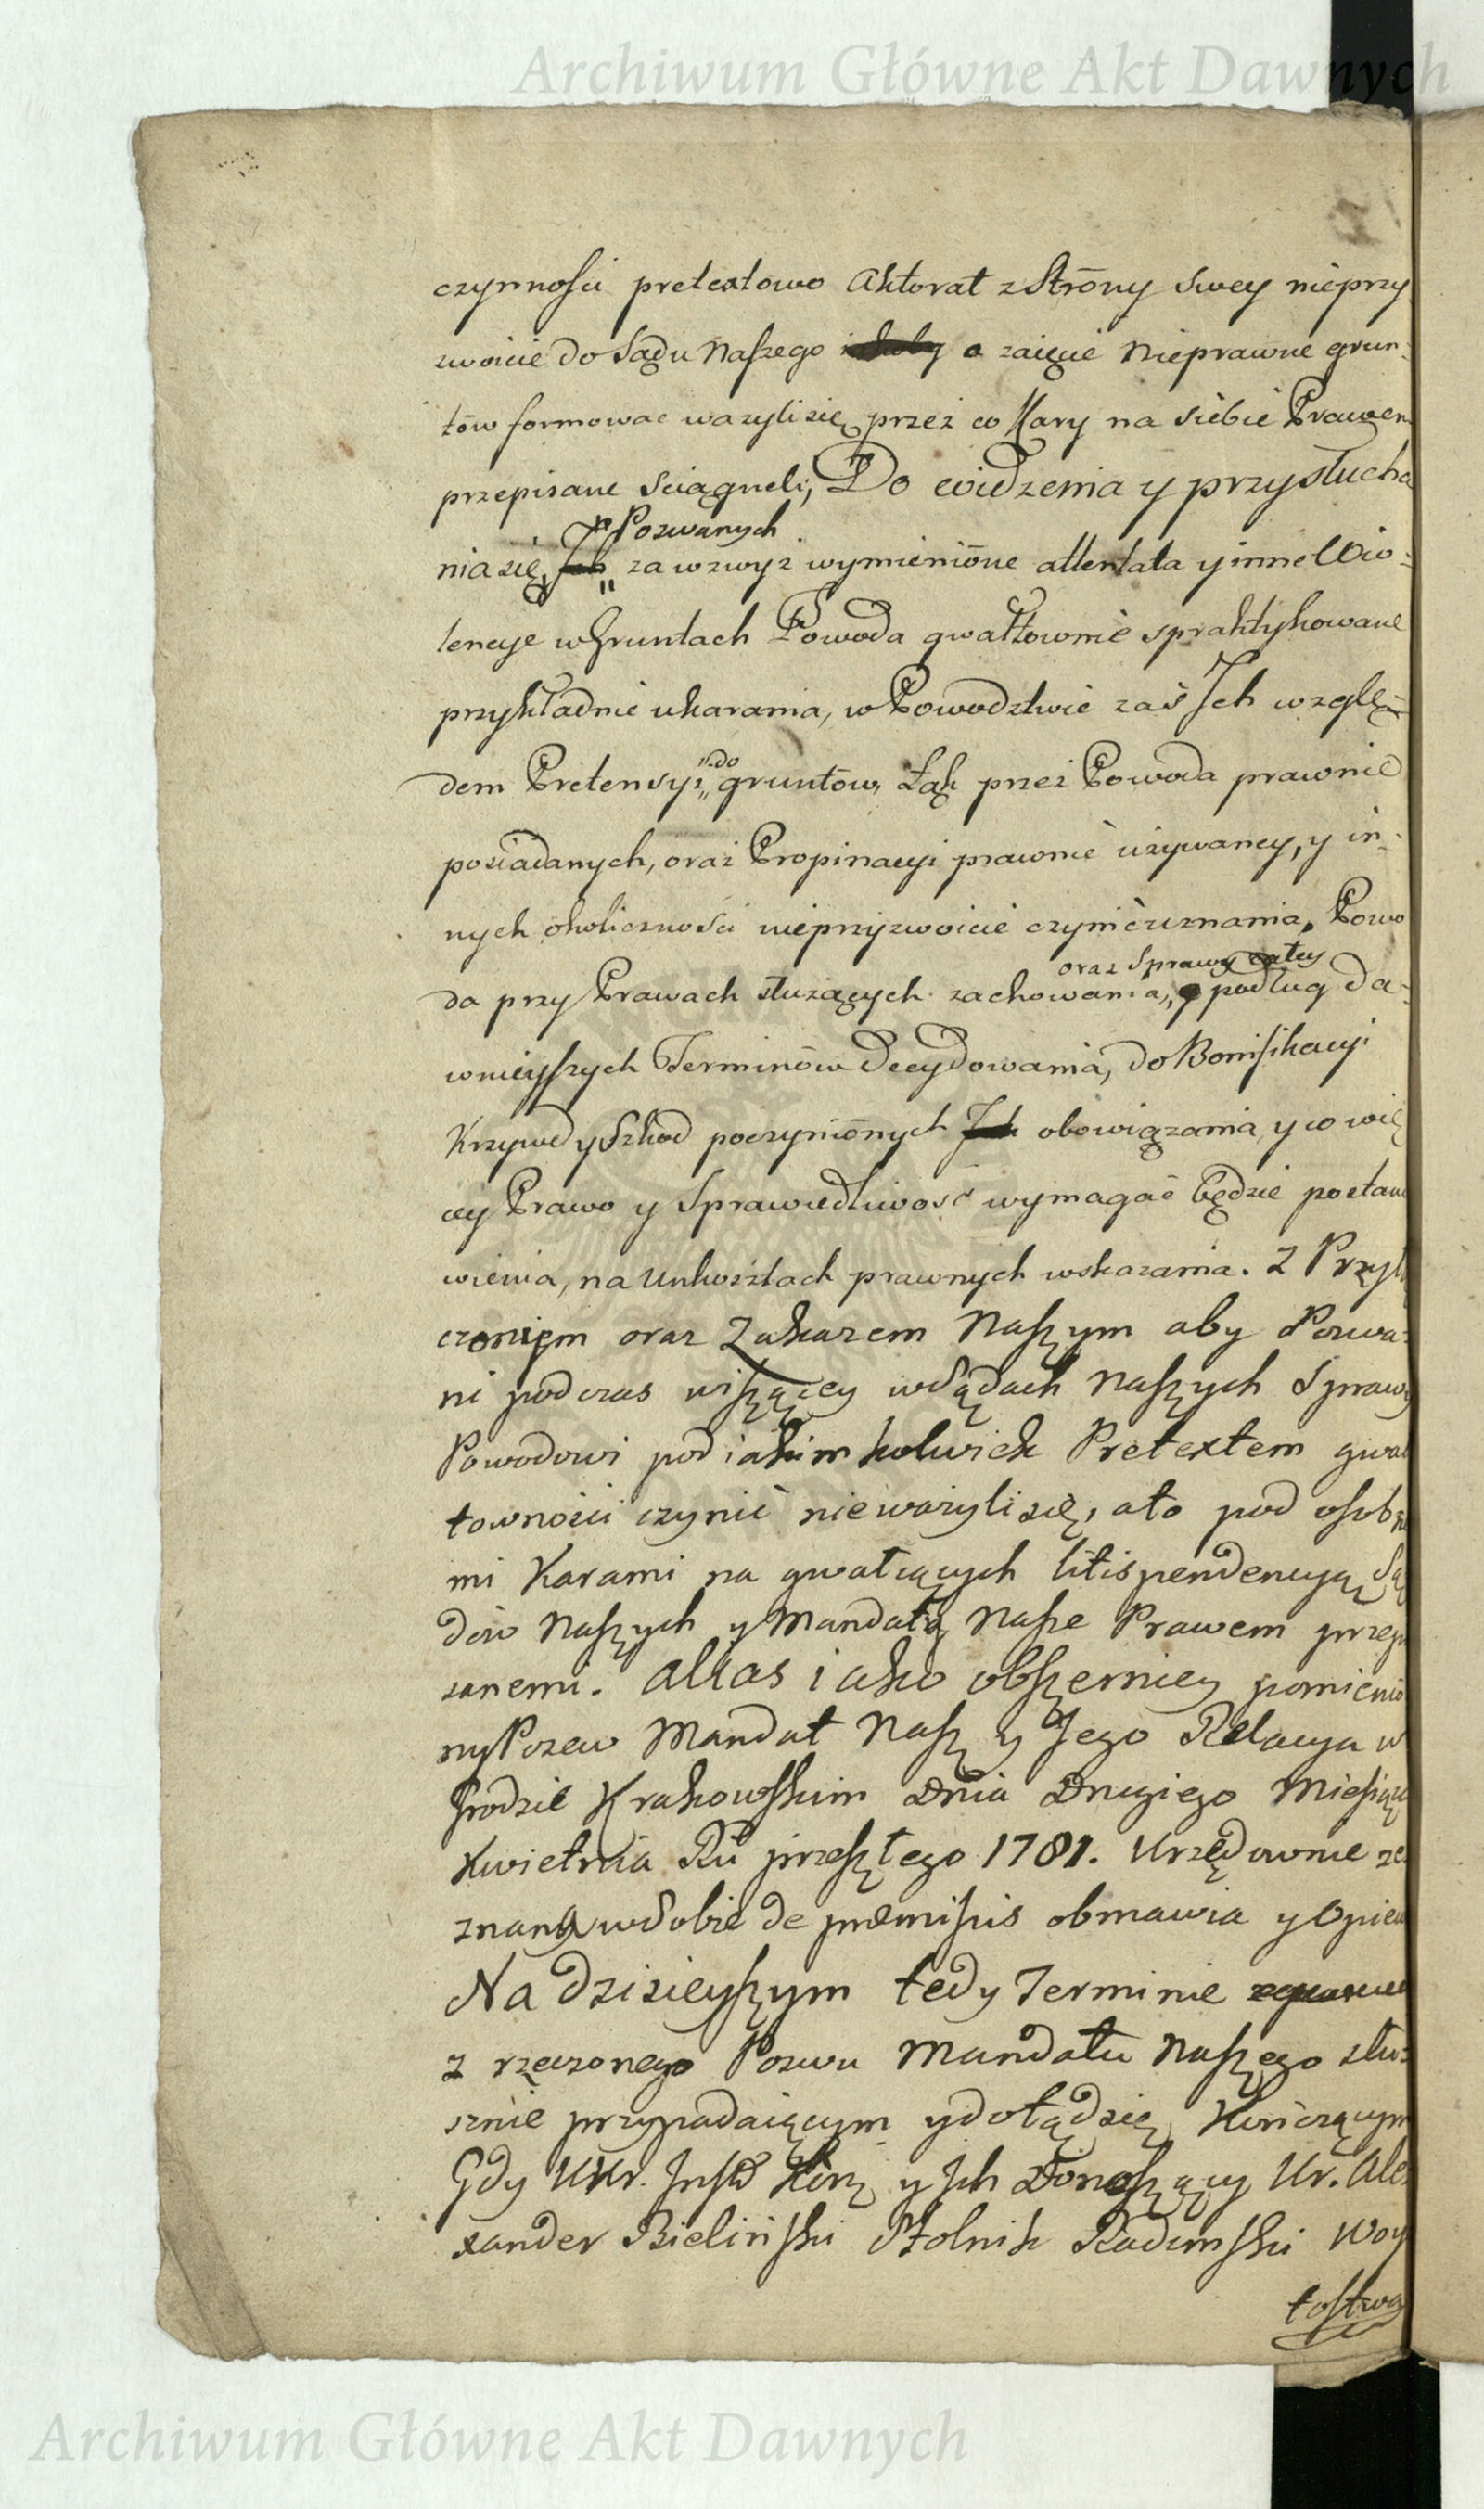 Archiwum Główne Akt Dawnych
czynnosci pretextowo Aktorat z Strōny swey nieprzy
zwoicie do Sądu Naszego o zaięcie Nieprawne grun-
tów formować ważyli się przez co Kary na siebie Prawem
przepisane sciągneli, Do widzenia y przysłucha
p Pozwanych
nia się, Ich za wzwyż wymieniōne attentata y inne Wio-
lencye w Gruntach Powoda gwałtownie spraktykowane
przykładnie ukarania, w Powodztwie zaś Ich wzglę-
do
dem Pretensyi gruntow, Łąk przez Powoda prawnie
posiadanych, oraz Propinacyi prawnie używaney, y in-
nych okoliczności nieprzyzwoicie czynić uznania, Powo
oraz Sprawy całey
da przy Prawach służących zachowania, podług Da-
wnieyszych Terminów Decydowania, do Bonifikacyi
Krzywd y Szkod poczyniōnych Ich obowiązania, y co wię
cey Prawo y Sprawiedliwość wymagać będzie postano
wienia, na Unkosztach prawnych wskazania. Z Przyłą
czeniem oraz Zakazem Naszym aby Pozwa-
ni podczas wiszącey w Sądach Naszych Sprawy
Powodowi pod iakimkolwiek Pretextem gwał
towności czynić nieważyli się, a to pod osobne
mi Karami na gwałcących litispendencyą Są
dów Naszych y Mandatą Nasze Prawem przepi
sanemi. Alias iako obszerniey pomienio
ny Pozew Mandat Nasz y Jego Relacya w
Grodzie Krakowskim Dnia Drugiego Miesiąca
Kwietnia Ru przeszłego 1781. Urzędownie ze
znana w Sobie de præmissis obmawia y Opiewa
Na dzisieyszym tedy Terminie
z rzeczonego Pozwu Mandatu Naszego słu-
sznie przypadaiącym y dotąd się Kończącym
Gdy UUr. Inst Korż y Ich Donoszący Ur. Ale-
xander Bieliński Stolnik Radomski Woy
tostwa
Archiwum Główne Akt Dawnych